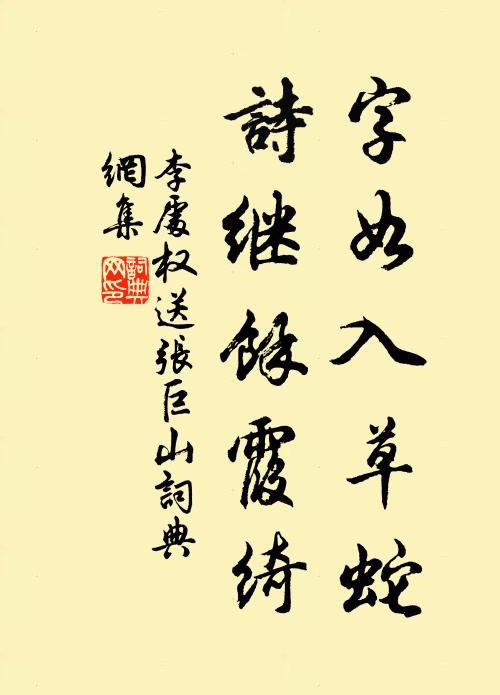 字如入草蛇
詩继餘霞绮
李處权送張巨山詞典
網集
詞典網印